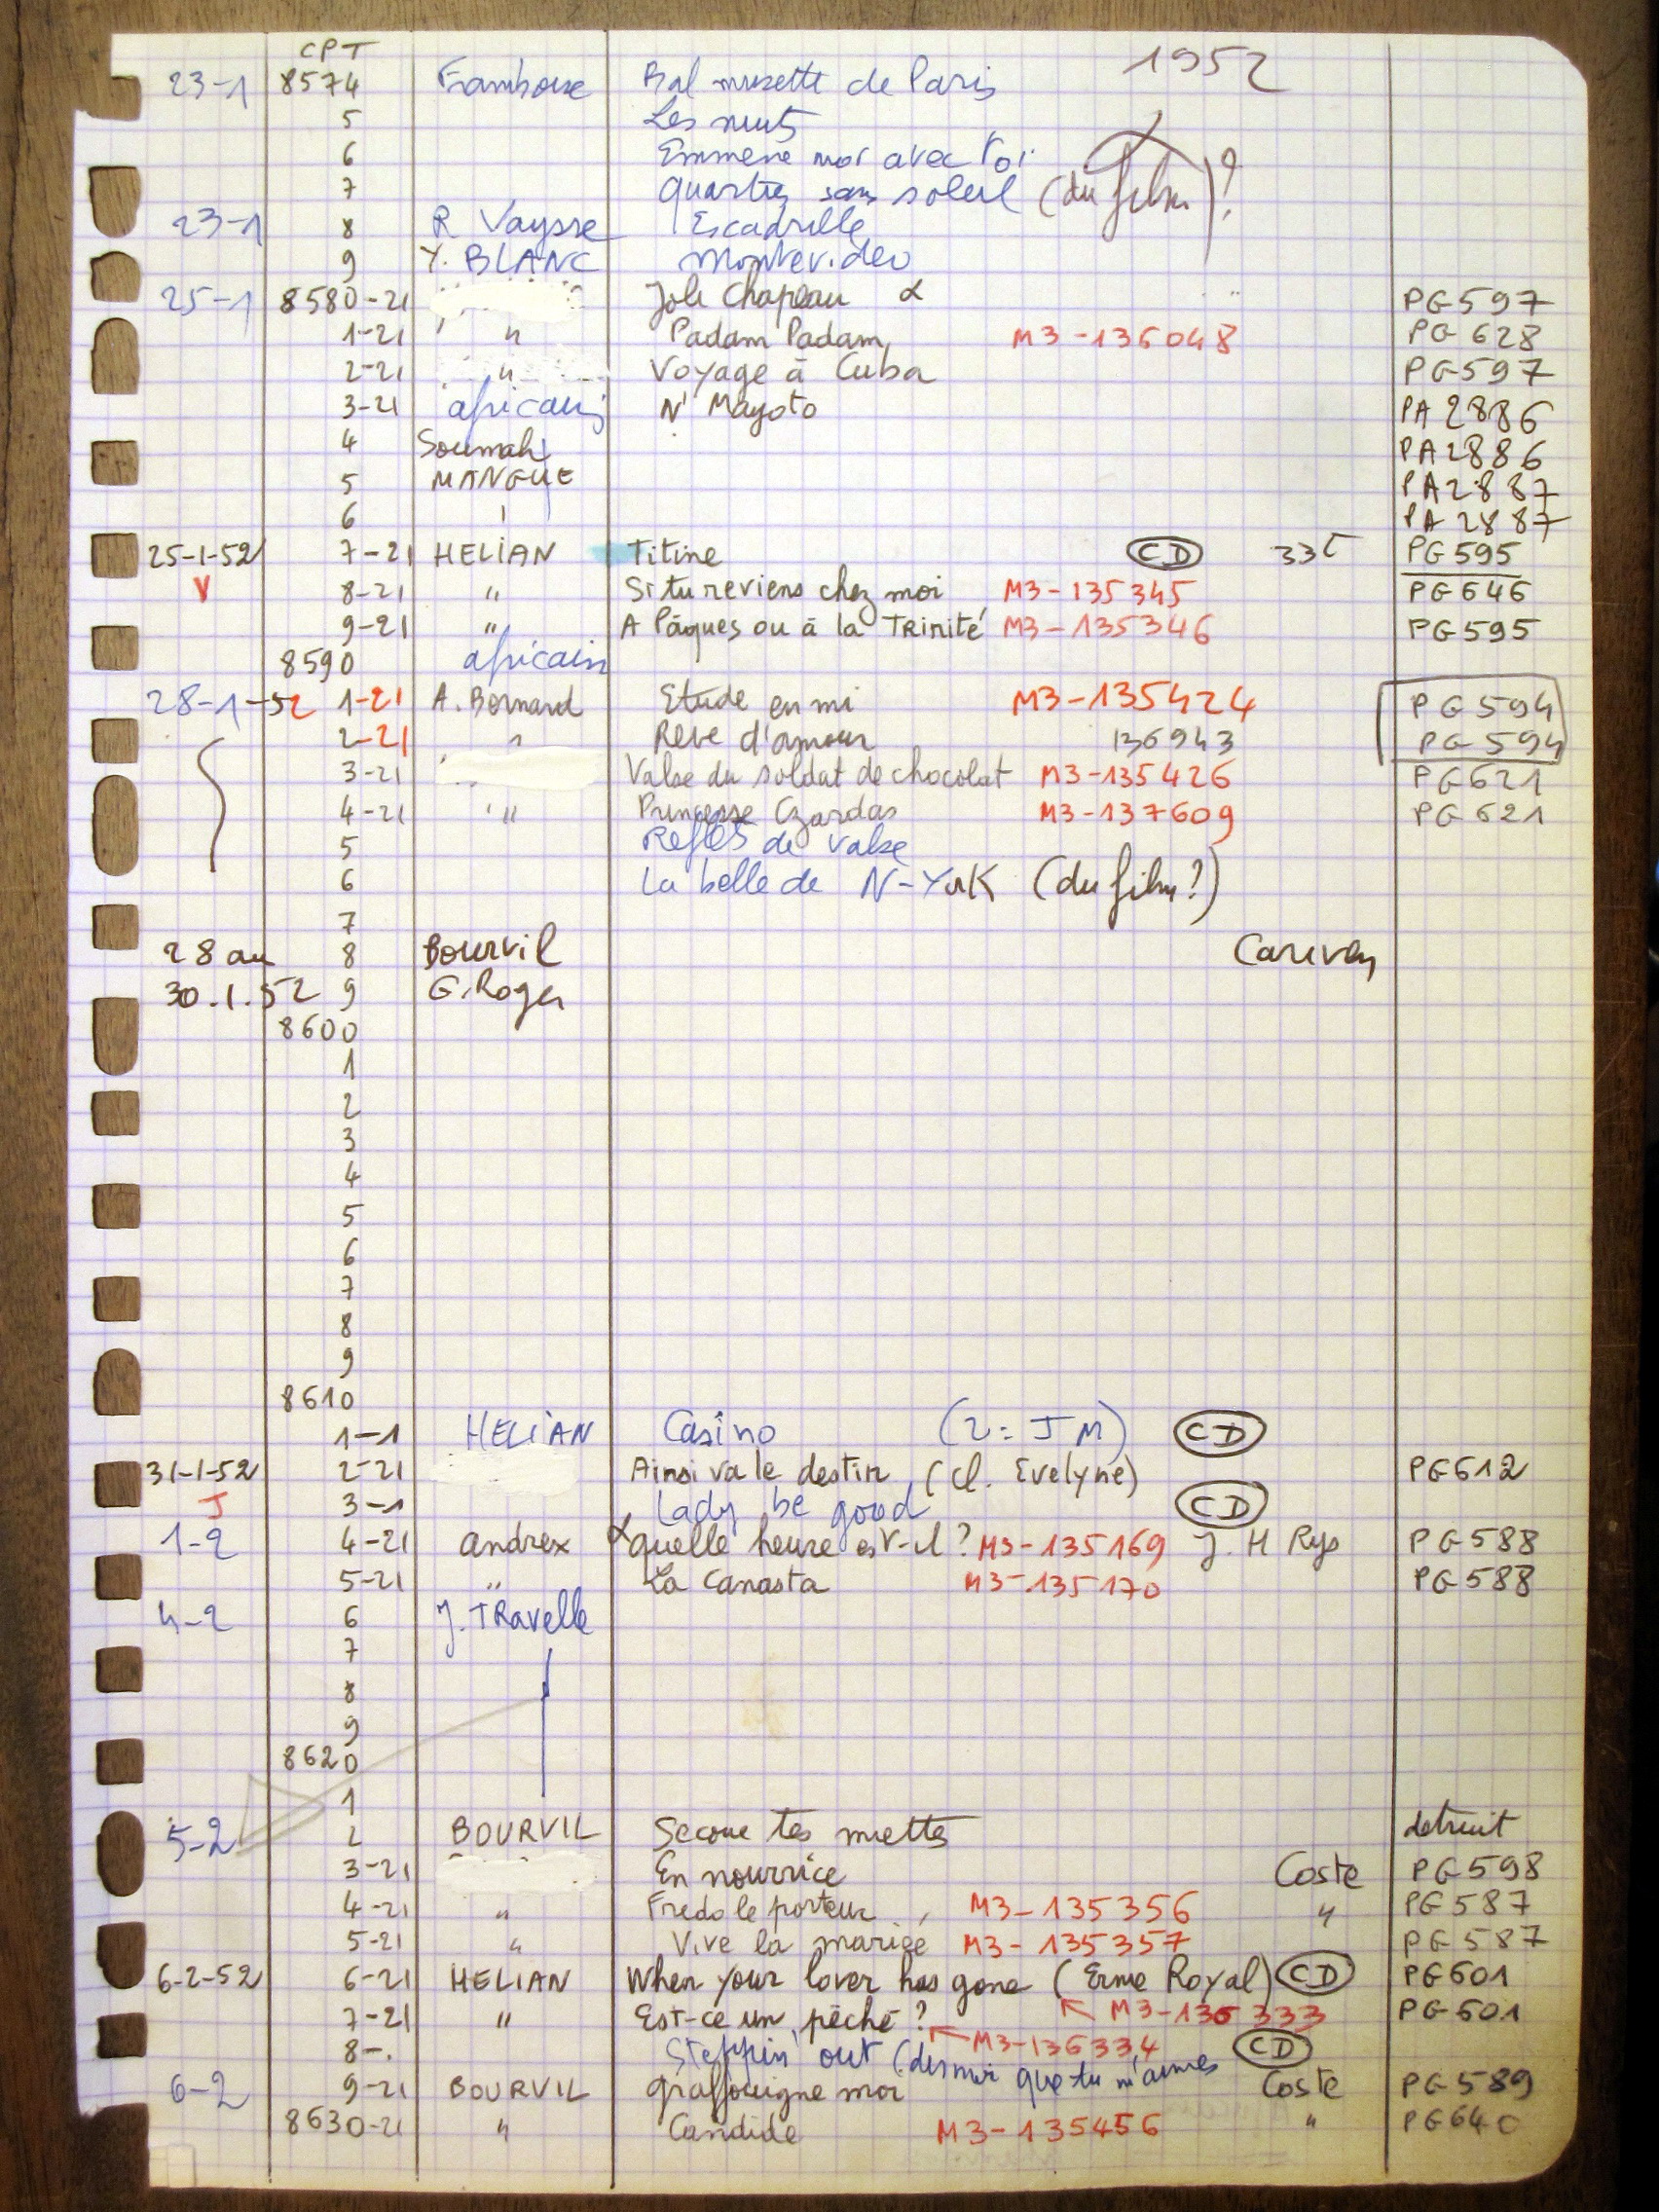 CPT 1952
23-1 8574 Framboise Bal musette de Paris
5 Les nuits
6 Emmène moi avec toi
7 quartier sans soleil (du film)?
23-1 8 R Vaysse Escadrille
9 Y. BLANC Montevideo
25-1 8580-21 Joli Chapeau α PG597
1-21 " Padam Padam M3-136048 PG 628
2-21 " Voyage à Cuba PG597
3-21 africains N' Mayoto PA 2886
4 Soumah PA2886
5 MANGUE PA2887
6 PA 2887
25-1-52 7-21 HELIAN Titine CD 33t PG595
V 8-21 " Si tu reviens chez moi M3-135345 PG646
9-21 " A Pâques ou à la Trinité M3-135346 PG595
8590 africain
28-1-52 1-21 A. Bernard Etude en mi M3-135424 PG594
2-21 " Reve d'amour 136943 PG594
3-21 Valse du soldat de chocolat M3-135426 PG621
4-21 " Princesse Czardas M3-137609 PG621
5 Reflets de valse
6 La belle de N-York (du film?)
7
28 au 8 Bourvil Cariven
30.1.52 9 G. Roger
8600
1
2
3
4
5
6
7
8
9
8610
1-1 HELIAN Casino (2 = JM) CD
31-1-52 2-21 Ainsi va le destin (Cl. Evelyne) PG612
J 3-1 Lady be good CD
1-2 4-21 andrex α quelle heure est-il? M3-135169 J. H Rys PG588
5-21 " La Canasta M3-135170 PG588
4-2 6 J. TRavelle
7
8
9
8620
1
5-2 2 BOURVIL Secoue tes miettes detruit
3-21 En nourrice Coste PG598
4-21 " Fredo le porteur M3-135356 " PG587
5-21 " Vive la mariée M3-135357 PG587
6-2-52 6-21 HELIAN When your lover has gone (Erme Royal) CD PG601
7-21 " Est-ce un péché? M3-136333 PG601
M3-136334
8-. Steppin' out (dis moi que tu m'aimes CD
6-2 9-21 BOURVIL graffouigne moi Coste PG589
8630-21 " Candide M3-135456 " PG640